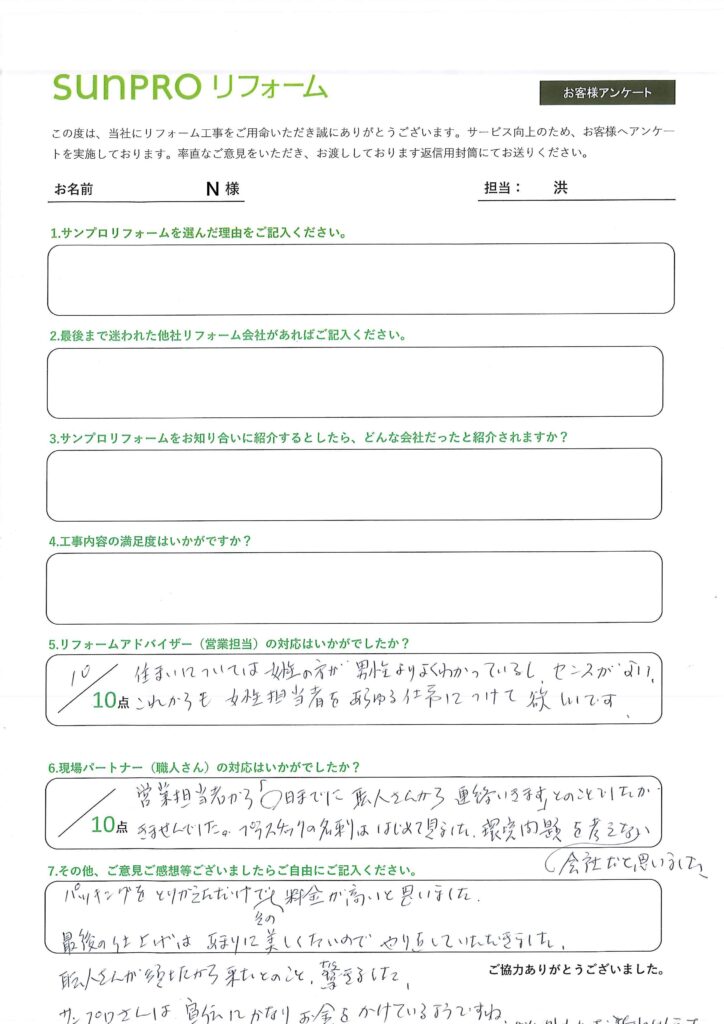 SUNPRO リフォーム
お客様アンケート
この度は、当社にリフォーム工事をご用命いただき誠にありがとうございます。サービス向上のため、お客様へアンケー
トを実施しております。率直なご意見をいただき、お渡ししております返信用封筒にてお送りください。
お名前 N 様
担当： 洪
1.サンプロリフォームを選んだ理由をご記入ください。
2.最後まで迷われた他社リフォーム会社があればご記入ください。
3.サンプロリフォームをお知り合いに紹介するとしたら、どんな会社だったと紹介されますか？
4.工事内容の満足度はいかがですか？
5.リフォームアドバイザー（営業担当）の対応はいかがでしたか？
10／10点
住まいについては女性の方が男性よりよくわかっているし、センスがよい。
これからも女性担当者をあらゆる仕事につけて欲しいです。
6.現場パートナー（職人さん）の対応はいかがでしたか？
／10点
営業担当者から「〇日までに職人さんから連絡いきます」とのことでしたが
きませんでした。プラスチックの名刺ははじめて見ました。環境問題を考えない
会社だと思いました。
7.その他、ご意見ご感想等ございましたらご自由にご記入ください。
パッキングをとりかえただけで 料金が高いと思いました。
その
最後の仕上げはあまりに美しくないのでやり直していただきました。
ご協力ありがとうございました。
職人さんが須坂から来たとのこと、驚きました。
サンプロさんは宣伝にかなりお金をかけているようですね